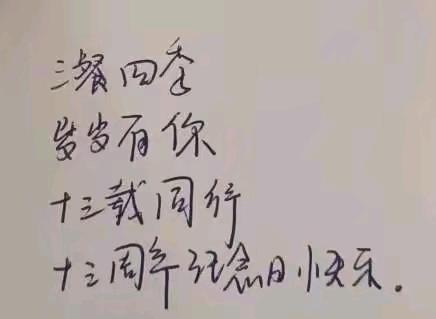 三餐四季
岁岁有你
十三载同行
十三周年纪念日快乐.